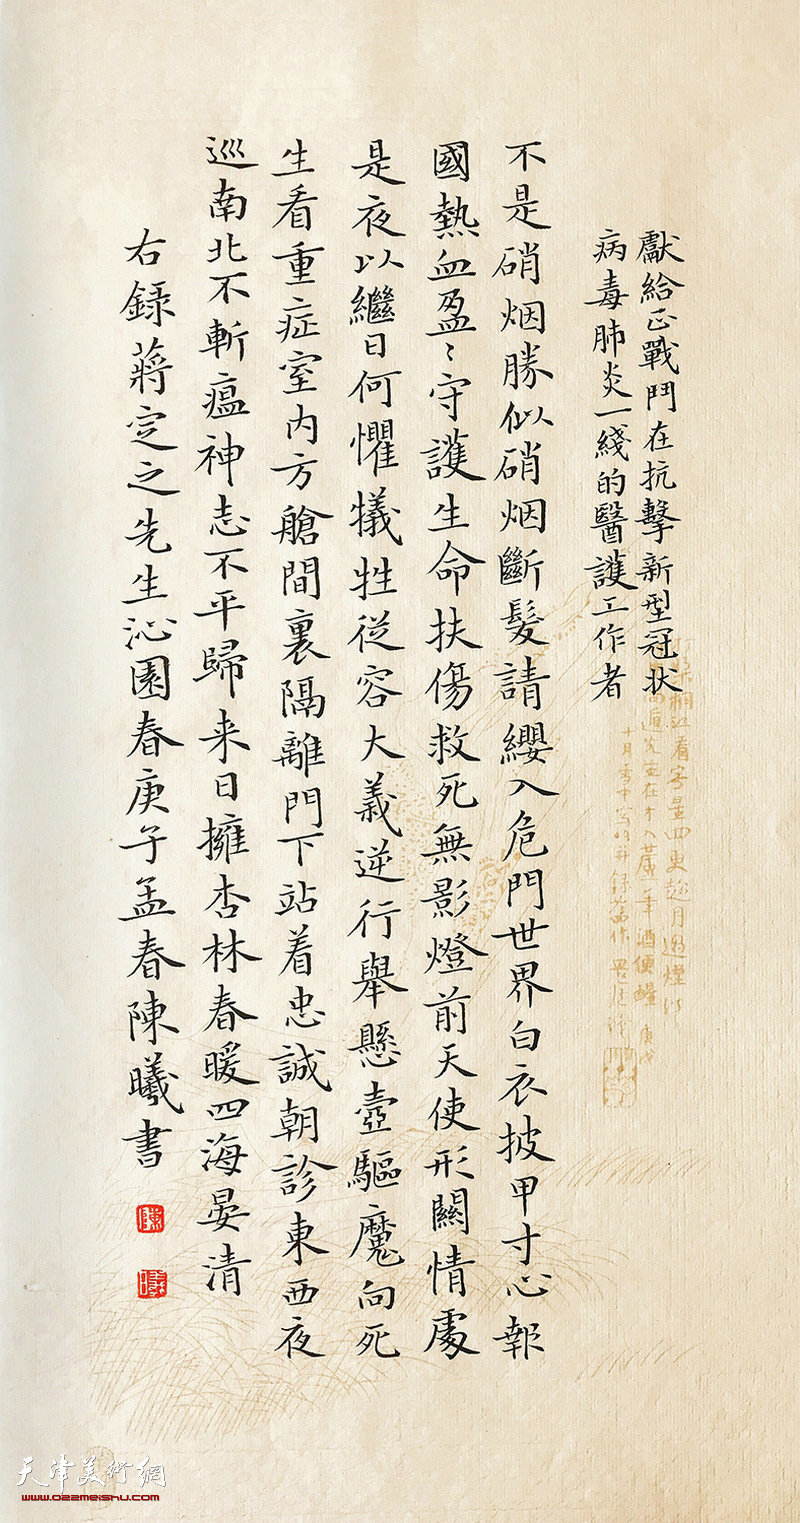 獻給正戰鬥在抗擊新型冠狀
病毒肺炎一綫的醫護工作者
不是硝烟勝似硝烟斷髮請纓入危門世界白衣披甲寸心報
國熱血盈〻守護生命扶傷救死無影燈前天使形關情處
是夜以繼日何懼犧牲從容大義逆行舉懸壺驅魔向死
生看重症室内方艙間裏隔離門下站着忠誠朝診東西夜
巡南北不斬瘟神志不平歸来日擁杏林春暖四海晏清
右録蔣定之先生沁園春庚子孟春陳曦書
陳
曦
天津美術網
www.022meishu.com